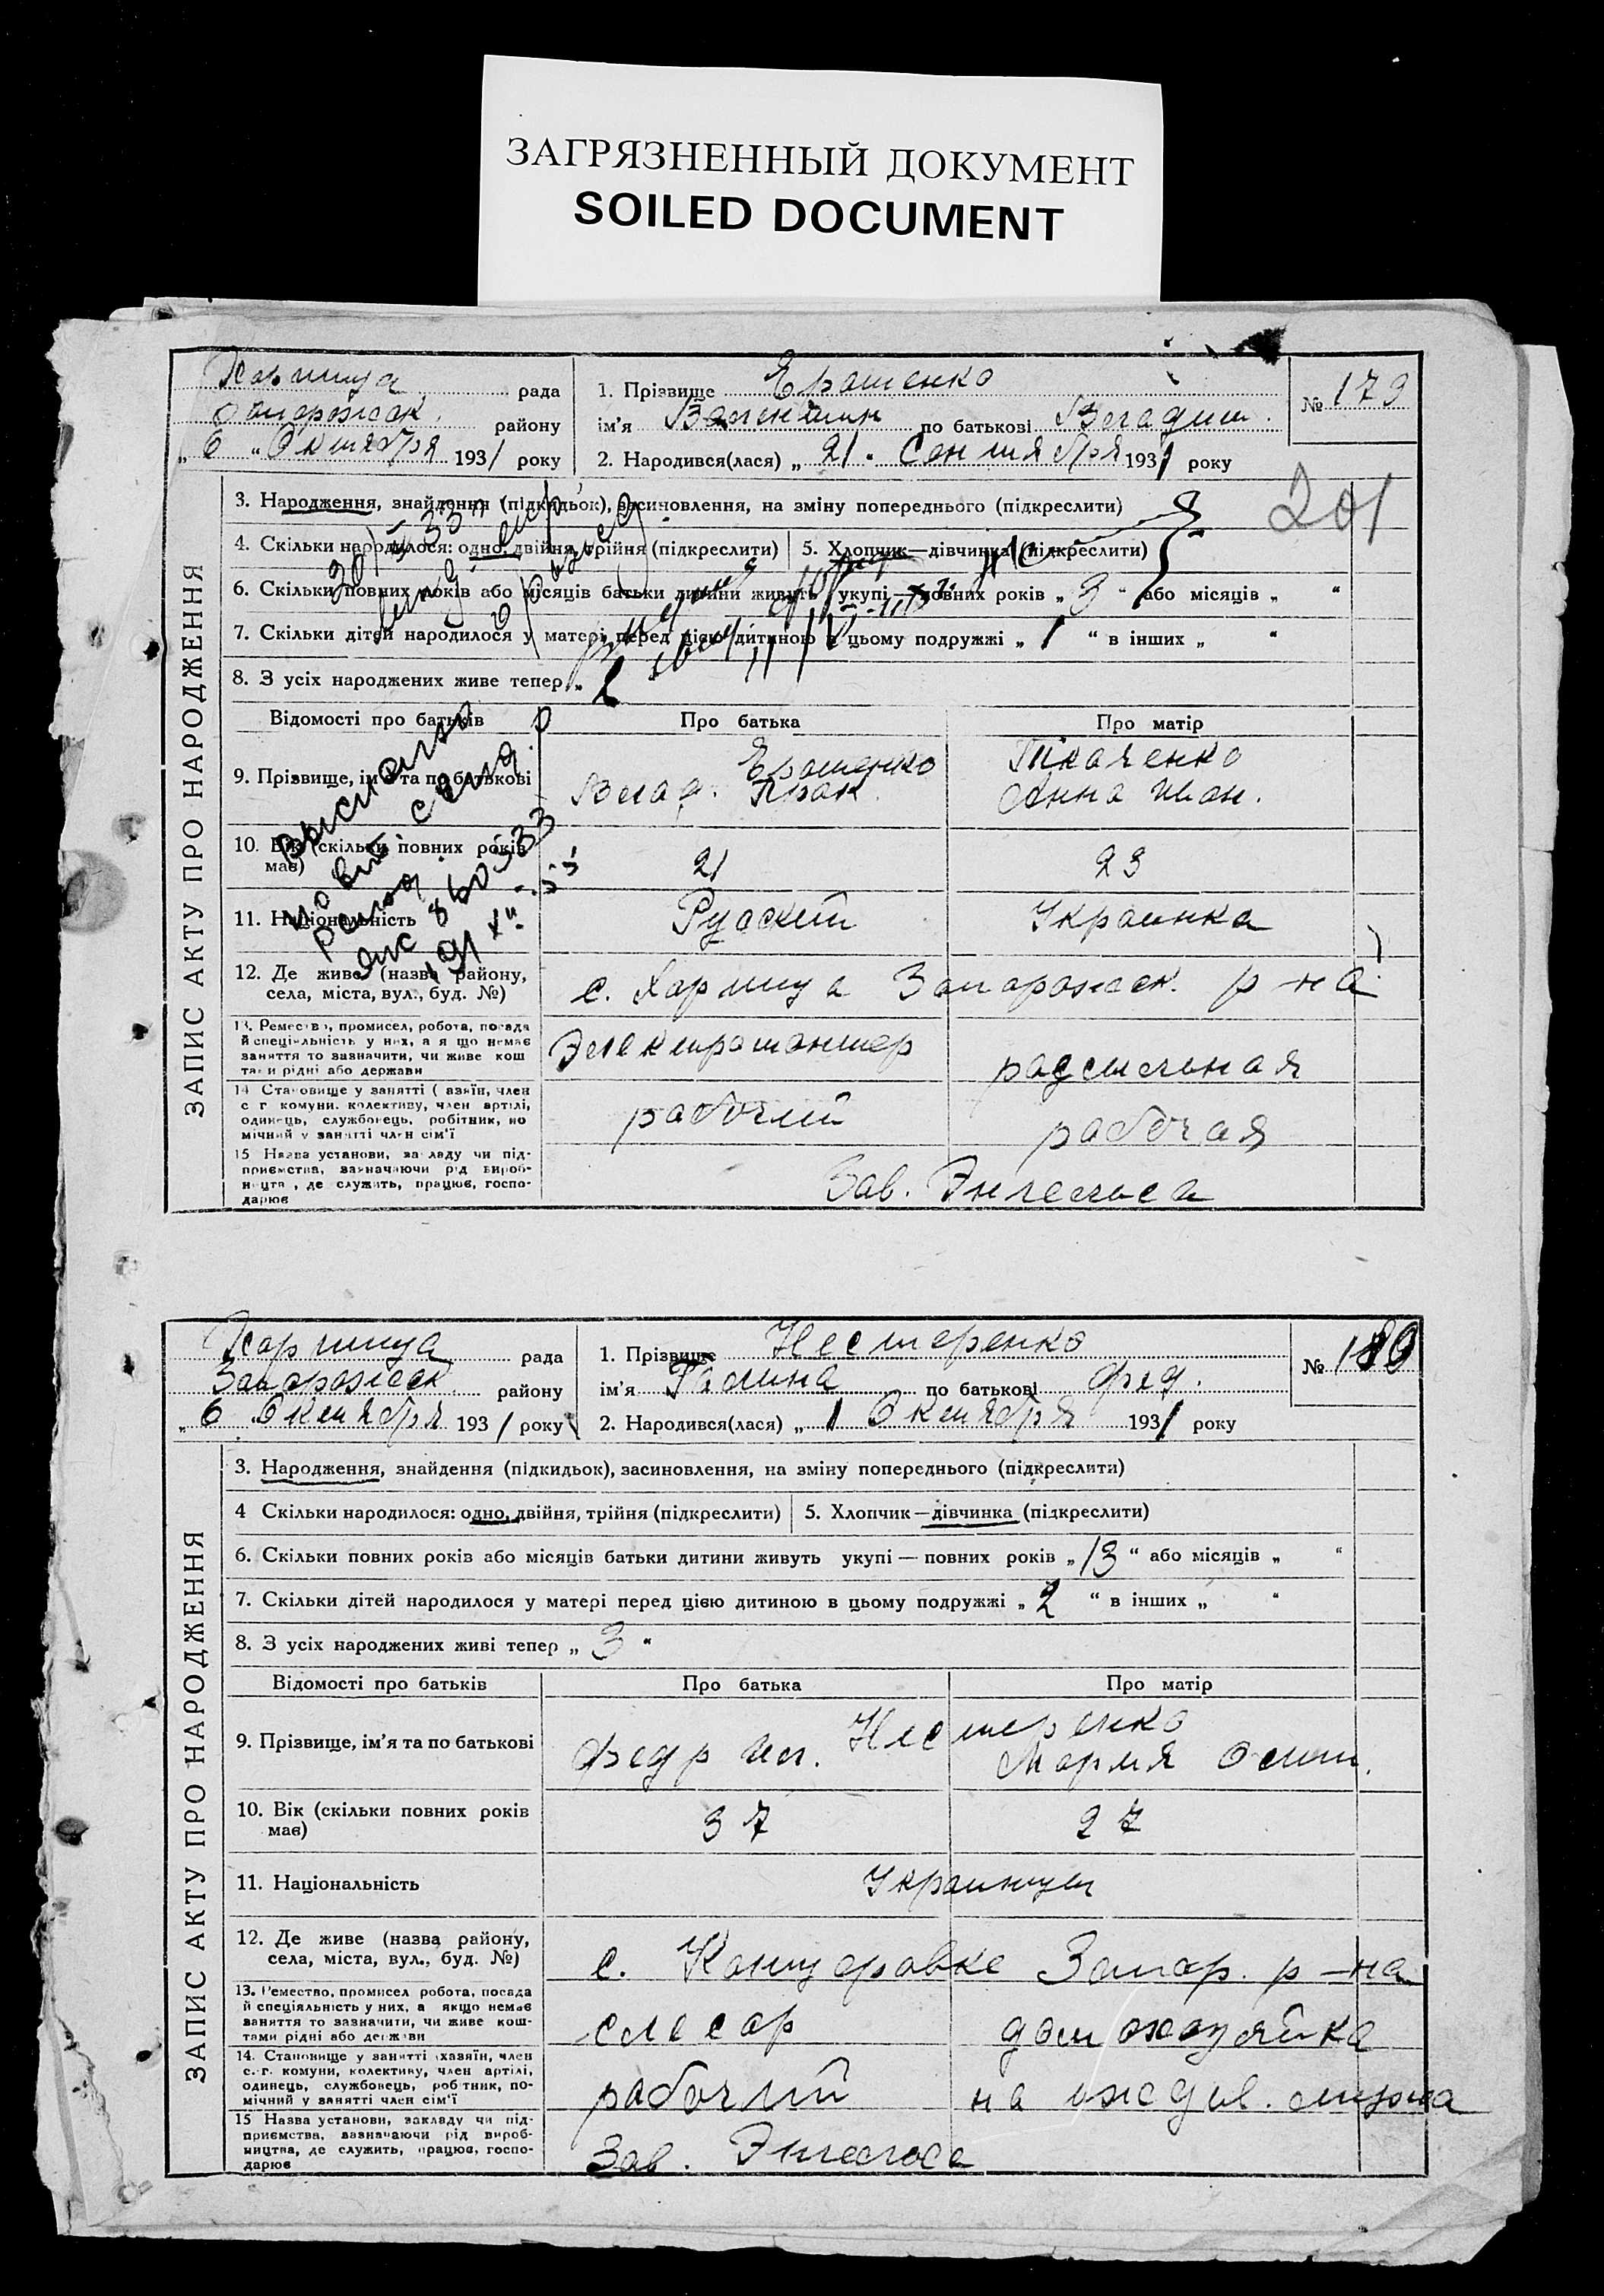 ЗАГРЯЗНЕННЫЙ ДОКУМЕНТ
SOILED DOCUMENT
Хортица рада
Запорожск. району
„ 6 “ Октября 1931 року
1. Прізвище Ерошенко
ім'я Валентин по батькові Владим.
2. Народився(лася) „ 21 “ Сентября 1931 року
№ 179
201
ЗАПИС АКТУ ПРО НАРОДЖЕННЯ
3. Народження, знайдення (підкидьок), засиновлення, на зміну попереднього (підкреслити)
4. Скільки народилося: одно, двійня, трійня (підкреслити) 5. Хлопчик—дівчинка (підкреслити)
6. Скільки повних років або місяців батьки дитини живуть укупі — повних років „ 3 “ або місяців „ “
7. Скільки дітей народилося у матері перед цією дитиною в цьому подружжі „ 1 “ в інших „ “
8. З усіх народжених живе тепер „
Відомості про батьків Про батька Про матір
9. Прізвище, ім'я та по батькові
Ерошенко
Влад.
Ткаченко
Анна Иван.
10. Вік (скільки повних років має) 21 23
11. Національність Руский Украинка
12. Де живе (назва району,
села, міста, вул., буд. №)
с. Хортица Запорожск. р-на
13. Ремество, промисел, робота, посада
й спеціяльність у них, а якщо немає
заняття то зазначити, чи живе кош
тами рідні або держави
Электромонтер рассыльная
14 Становище у занятті (хазяїн, член
с г комуни, колективу, член артілі,
одинець, службовець, робітник, по
мічний у занятті член сім'ї
рабочий рабочая
15 Назва установи, закладу чи під-
приємства, зазначаючи рід вироб-
ництва, де служить, працює, госпо-
дарює
Зав. Энгельса
Хортица рада
Запорожск. району
„ 6 “ Октября 1931 року
1. Прізвище Нестеренко
ім'я Галина по батькові Фед.
2. Народився(лася) „ 1 Октября 1931 року
№ 180
ЗАПИС АКТУ ПРО НАРОДЖЕННЯ
3. Народження, знайдення (підкидьок), засиновлення, на зміну попереднього (підкреслити)
4 Скільки народилося: одно, двійня, трійня (підкреслити) 5. Хлопчик—дівчинка (підкреслити)
6. Скільки повних років або місяців батьки дитини живуть укупі — повних років „ 13 “ або місяців „ “
7. Скільки дітей народилося у матері перед цією дитиною в цьому подружжі „ 2 “ в інших „ “
8. З усіх народжених живі тепер „ 3 “
Відомості про батьків Про батька Про матір
9. Прізвище, ім'я та по батькові
Нестеренко
Федр Мария Осип.
10. Вік (скільки повних років
має)
37 27
11. Національність Украинцы
12. Де живе (назва району,
села, міста, вул., буд. №)
с. Канцеровке Запор. р-на
13. Ремество, промисел робота, посада
й спеціяльність у них, а якщо немає
заняття то зазначити, чи живе кош-
тами рідні або держави
слесар домохозяйка
14. Становище у занятті хазяїн, член
с.-г. комуни, колективу, член артілі,
одинець, службовець, робітник, по-
мічний у занятті член сім'ї
рабочий на иждив. мужа
15 Назва установи, закладу чи під-
приємства, зазначаючи рід вироб-
ництва, де служить, працює, госпо-
дарює
Зав. Энгельса